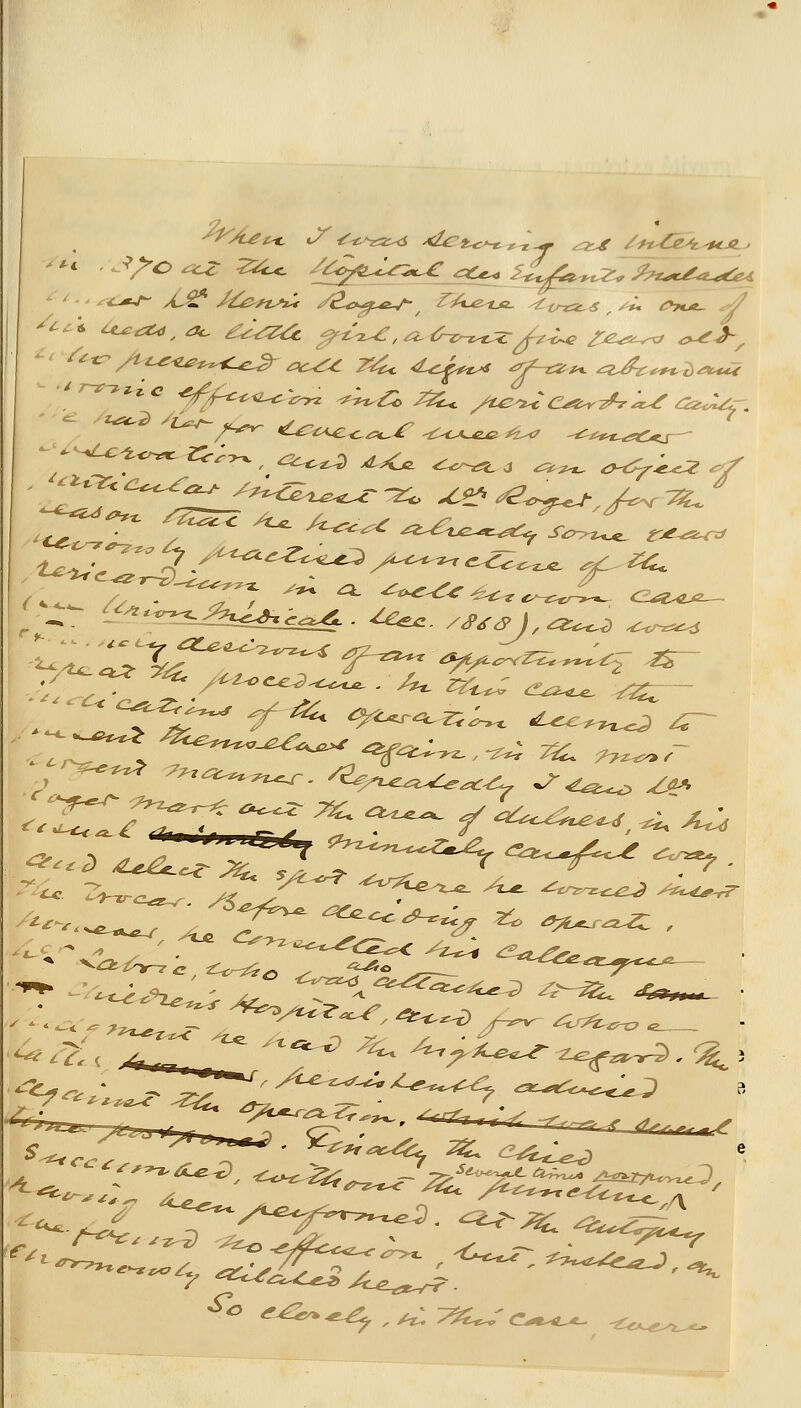 When I was serving as interne
in 1870 at the Hôpital des Enfants Malades
under Dr Henri Roger, there was, in one of
his beds, a little girl, about five years old,
who presented all the signs of an abundant
chronic effusion into the pericardial cavity.
We had her for several weeks under
observation, and she was an object of
particular interest to Dr Roger, for the
reason that he had already some years
previously practised puncture of the
pericardium in a well known case
(see Union Médicale. Dec. 1868), and was
extremely desirous of an opportunity to
repeat the procedure. In this case the
indications of the operation seemed to
present themselves again, in the most
urgent manner. Repeatedly I saw Dr
Roger mark out the area of dulness, in his
usual minutely minutely careful way.
and select the spot where he would insert
the trocar. Before deciding to operate,
however, he consulted his colleague
Dr Labric, who was also attached to the same
Children's Hospital, and for whose
judgment he had the highest regard. The
latter, however, persistently advised
against the operation. which was several
times postponed. Finally the child
succumbed, without the puncture, several times postponed,
having been performed. At the autopsy
we found no effusion, but, instead, an
enormously dilated heart.
So closely, in this case, were